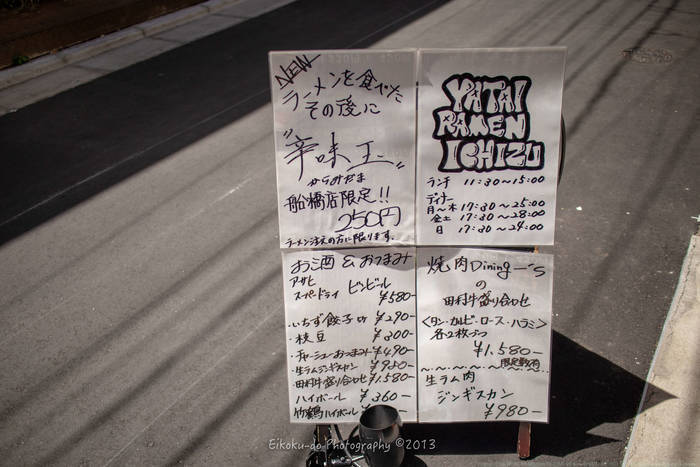 NEW
ラーメンを食べた
その後に
"辛味玉"
からみだま
船橋店限定!!
250円
ラーメン注文の方に限ります。
YATAI
RAMEN
ICHIZU
ランチ 11:30~15:00
ディナー
月~木 17:30~25:00
金土 17:30~28:00
日 17:30~24:00
お酒 & おつまみ
アサヒ
スーパードライ ビンビール
¥580-
・いちず餃子 ¥290-
・枝豆 ¥300-
・チャーシューおつまみ ¥490-
・生ラムジンギスカン ¥980-
・田村牛盛り合わせ ¥1,580-
ハイボール ¥360-
竹鶴ハイボール
焼肉Dining 一's
の
田村牛盛り合わせ
<タン・カルビ・ロース・ハラミ>
各2枚づつ
¥1,580-
限定数有
生ラム肉
ジンギスカン
¥980-
Eikoku-do Photography ©2013